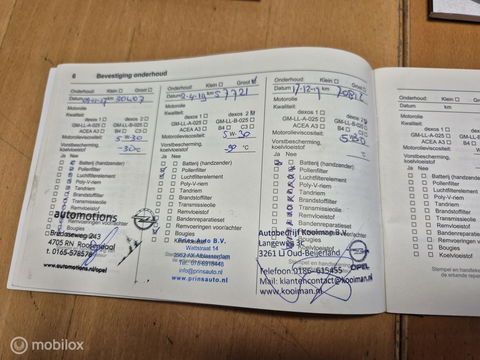 6 Bevestiging onderhoud
Onderhoud: Klein ☐ Groot ☐
Datum km 30407
Motorolie
dexos 1 ☐ dexos 2 ☐
GM-LL-A-025 ☐ GM-LL-B-025 ☐
ACEA A3 ☐ B4 ☐ C3 ☐
Motorolieviscositeit: 5W-30
Vorstbescherming, koelvloeistof -30 °C
Ja Nee
☐ ☐ Batterij (handzender)
☐ ☐ Pollenfilter
☐ ☐ Luchtfilterelement
☐ ☐ Poly-V-riem
☐ ☐ Tandriem
☐ ☐ Brandstoffilter
☐ ☐ Transmissieolie
Remvoeringen voor/achter
automotions
Bredaseweg 243
4705 RN Roosendaal
t. 0165-578578
www.automotions.nl/opel
Onderhoud: Klein ☐ Groot
Datum 2-4-19 km 57721
Motorolie
dexos 1 ☐ dexos 2
GM-LL-A-025 ☐ GM-LL-B-025 ☐
ACEA A3 ☐ B4 ☐ C3 ☐
Motorolieviscositeit: 5W-30
Vorstbescherming, koelvloeistof -30 °C
Ja Nee
Batterij (handzender)
Pollenfilter
Luchtfilterelement
Poly-V-riem
Tandriem
Brandstoffilter
Transmissieolie
Bandenreparatieset
Remvoeringen voor/achter
Bougies
Prins Auto B.V.
Weitstraat 14
2952 AX Alblasserdam
Tel. 078-6918448
info@prinsauto.nl
www.prinsauto.nl
Onderhoud: Klein ☐ Groot
Datum 17-12-19 km
Motorolie
dexos 1 ☐ dexos 2
GM-LL-A-025 ☐ GM-LL-B-025 ☐
ACEA A3 ☐ B4 ☐ C3 ☐
Motorolieviscositeit:
Vorstbescherming, koelvloeistof °C
Ja Nee
Batterij (handzender)
Pollenfilter
Luchtfilterelement
Poly-V-riem
Tandriem
Brandstoffilter
Transmissieolie
Bandenreparatieset
Remvoeringen voor/achter
Bougies
Koelvloeistof
Autobedrijf Kooiman B.V.
Langeweg 3c
3261 LJ Oud-Beijerland
Telefoon: 0186-615455
Mail: klantencontact@kooiman.nl
www.kooiman.nl
OPEL
Onderhoud: Klein
Datum km
Motorolie
dexos 1 ☐
GM-LL-A-025 ☐
ACEA A3 ☐
Motorolieviscositeit:
Vorstbescherming, koelvloeistof
Ja Nee
☐ ☐ Batterij (handz
☐ ☐ Pollenfilter
☐ ☐ Luchtfilterelem
☐ ☐ Poly-V-riem
☐ ☐ Tandriem
☐ ☐ Brandstoffilter
☐ ☐ Transmissieol
☐ ☐ Bandenrepara
☐ ☐ Remvoeringen
☐ ☐ Bougies
☐ ☐ Koelvloeistof
Stempel en handteke
de erkende repar
mobilox